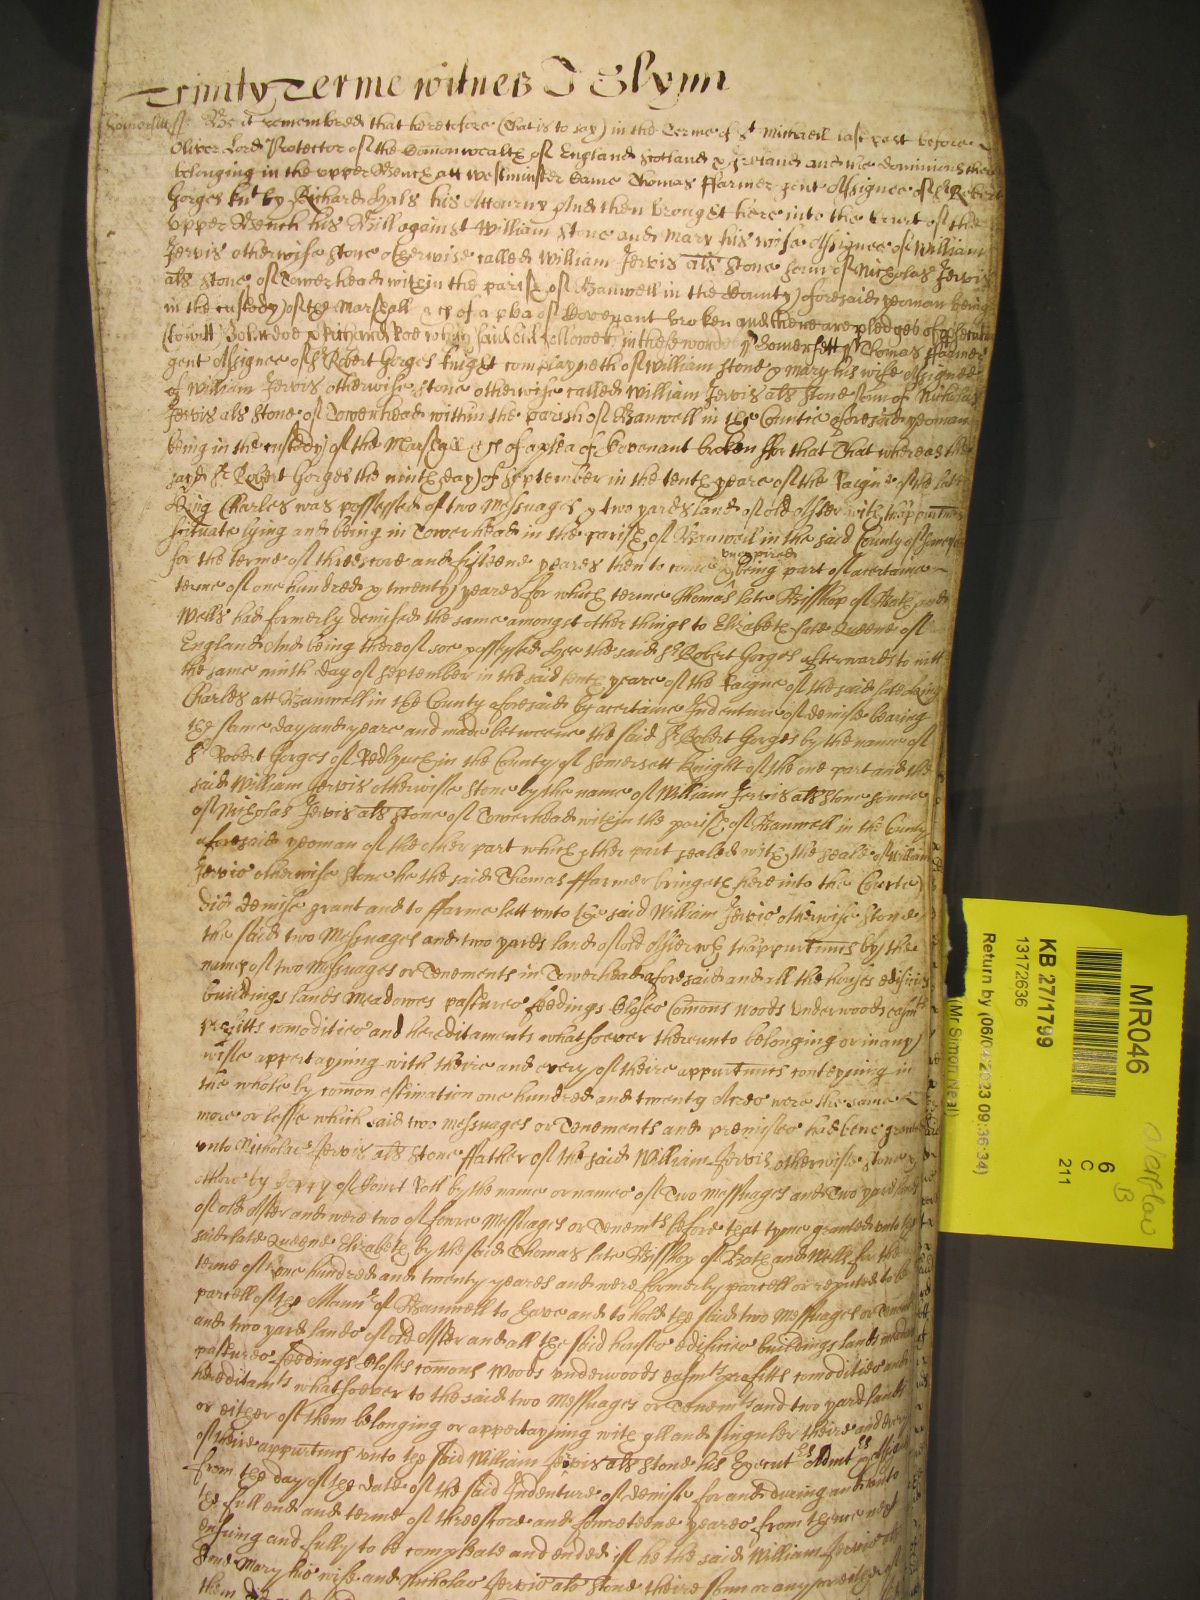 Trinity Terme witnes J Glynn
Somersett ss Be it remembred that heretofore (that is to say) in the Terme of St Michaell last past before
Oliver Lord Protector of the Comonwealth of England Scotland & Ireland and the dominions there
belonging in the upper Bench att Westminster Came Thomas ffarmer gent Assignee of Sr Robert
Gorges knt by Richard Hals his Attourny And then brought here into the Court of the
upper Bench his Bill against William Stone and Mary his wife Assignee of William
Jervis otherwise Stone otherwise called William Jervis als Stone sonn of Nicholas Jervis
als Stone of Towerhead within the parish of Banwell in the County aforesaid yeoman being
in the custody of the Marshall &c of a plea of Covenant broken and there are pledges of
(to witt) John doe & Richard Roe which said bill followeth in these words ss Somersett ss Thomas ffarmer
gent Assignee of Sr Robert Gorges knight complayneth of William Stone & Mary his wife Assignee
of William Jervis otherwise Stone otherwise called William Jervis als Stone sonn of Nicholas
Jervis als Stone of Towerhead within the parish of Banwell in the Countie aforesaid yeoman
being in the custody of the Marshall &c of a plea of Covenant broken ffor that That whereas the
said Sr Robert Gorges the ninth day of September in the tenth yeare of the Raigne of the late
King Charles was possessed of two Messuages & two yards land of old Auster with thappurtenncs
scituate lying and being in Towerhead in the parish of Banwell in the said County of
for the terme of threescore and fifteene yeares then to come & unexpired being part of a certaine
terme of one hundred & twenty yeares for which terme Thomas late Bisshop of Bath and
Wells had formerly demised the same amongst other things to Elizabeth late Queene of
England And being thereof soe possessed hee the said Sr Robert Gorges afterwards to witt
the same ninth day of September in the said tenth yeare of the Raigne of the said late King
Charles att Banwell in the County aforesaid by a certaine Indenture of demise bearing
the same day and yeare and made betweene the said Sr Robert Gorges by the name of
Sr Robert Gorges of Redlynch in the County of Somersett Knight of the one part and the
said William Jervis otherwise Stone by the name of William Jervis als Stone sonne
of Nicholas Jervis als Stone of Towerhead within the parish of Banwell in the County
aforesaid yeoman of the other part which other part sealed with the seale of William
Jervis otherwise Stone he the said Thomas ffarmer bringeth here into the Courte)
did demise grant and to ffarme lett unto the said William Jervis otherwise Stone
the said two Messuages and two yards land of old Auster wth thappurtenncs by the
names of two Messuages or Tenements in Towerhead aforesaid and all the houses edifices
buildings lands meadowes pastures feedings Closes Comons woods underwoods easmts
profitts comodities and hereditaments whatsoever thereunto belonging or in any
wise appertayning with theire and every of theire appurtenncs conteyning in
the whole by comon estimation one hundred and twenty Acres were the same
more or lesse which said two messuages or Tenements and premises had bene granted
unto Nicholas Jervis als Stone ffather of the said William Jervis otherwise Stone &
others by Coppy of Court Roll by the name or names of Two messuages and Two yard lands
of old Auster and were two of foure Messuages or Tenemts before that tyme granted unto the
said late Queene Elizabeth by the said Thomas late Bisshop of Bath and Wells for the
terme of one hundred and twenty yeares and were formerly parcell or reputed to be
parcell of the Mannor of Banwell to have and to hold the said two Messuages or
and two yard lands of old Auster and all the said houses edifices buildings lands
pastures feedings Closes comons woods underwoods easmts profitts comodities and
hereditamts whatsoever to the said two Messuages or Tenemts and two yard lands
or either of them belonging or appertayning with all and singuler theire and every
of theire appurtenncs unto the said William Jervis als Stone his Execut Admt
from the day of the date of the said Indenture of demise for and during and unto
the full end and terme of threescore and fourteene yeares from thence next
ensuing and fully to be compleate and ended if he the said William Jervis
and Mary his wife and Nicholas Jervis als Stone theire sonn or any or either of
them
MR046
6
C
211
B
KB 27/1799
13172636
Return by (06/04/2023 09:36:34)
(Mr Simon Neal)